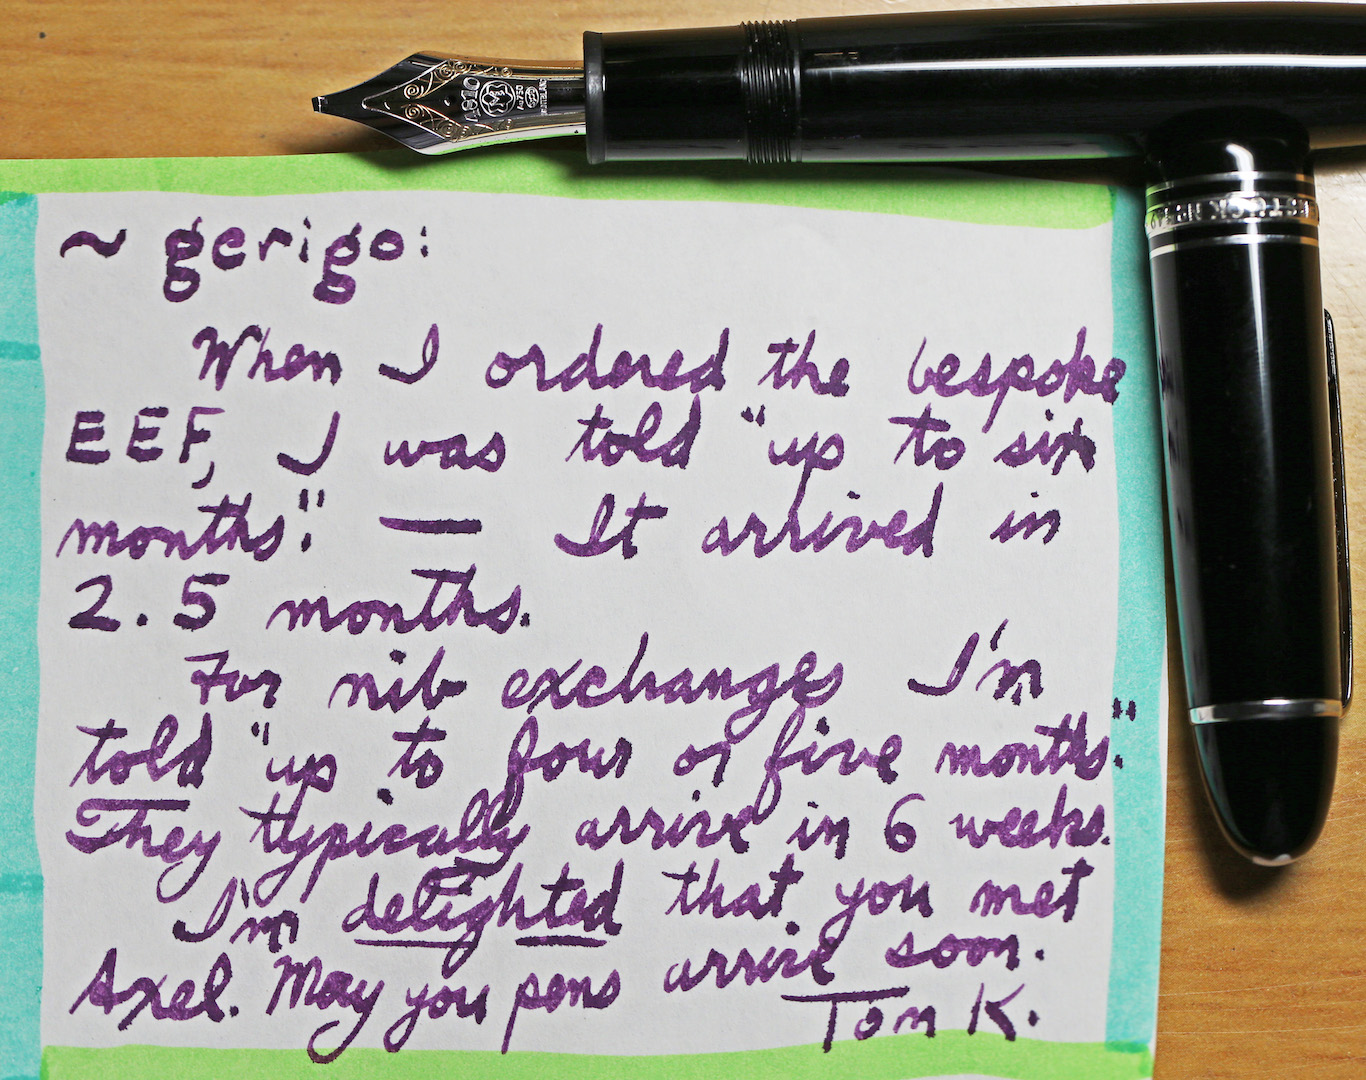 4810
Au750
MONTBLANC
~ gerigo:
When I ordered the bespoke
EEF, I was told "up to six
months." — It arrived in
2.5 months.
For nib exchanges I'm
told "up to four or five months."
They typically arrive in 6 weeks.
I'm delighted that you met
Axel. May you pens arrive soon.
Tom K.